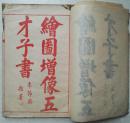 繪圖增像五
才子書